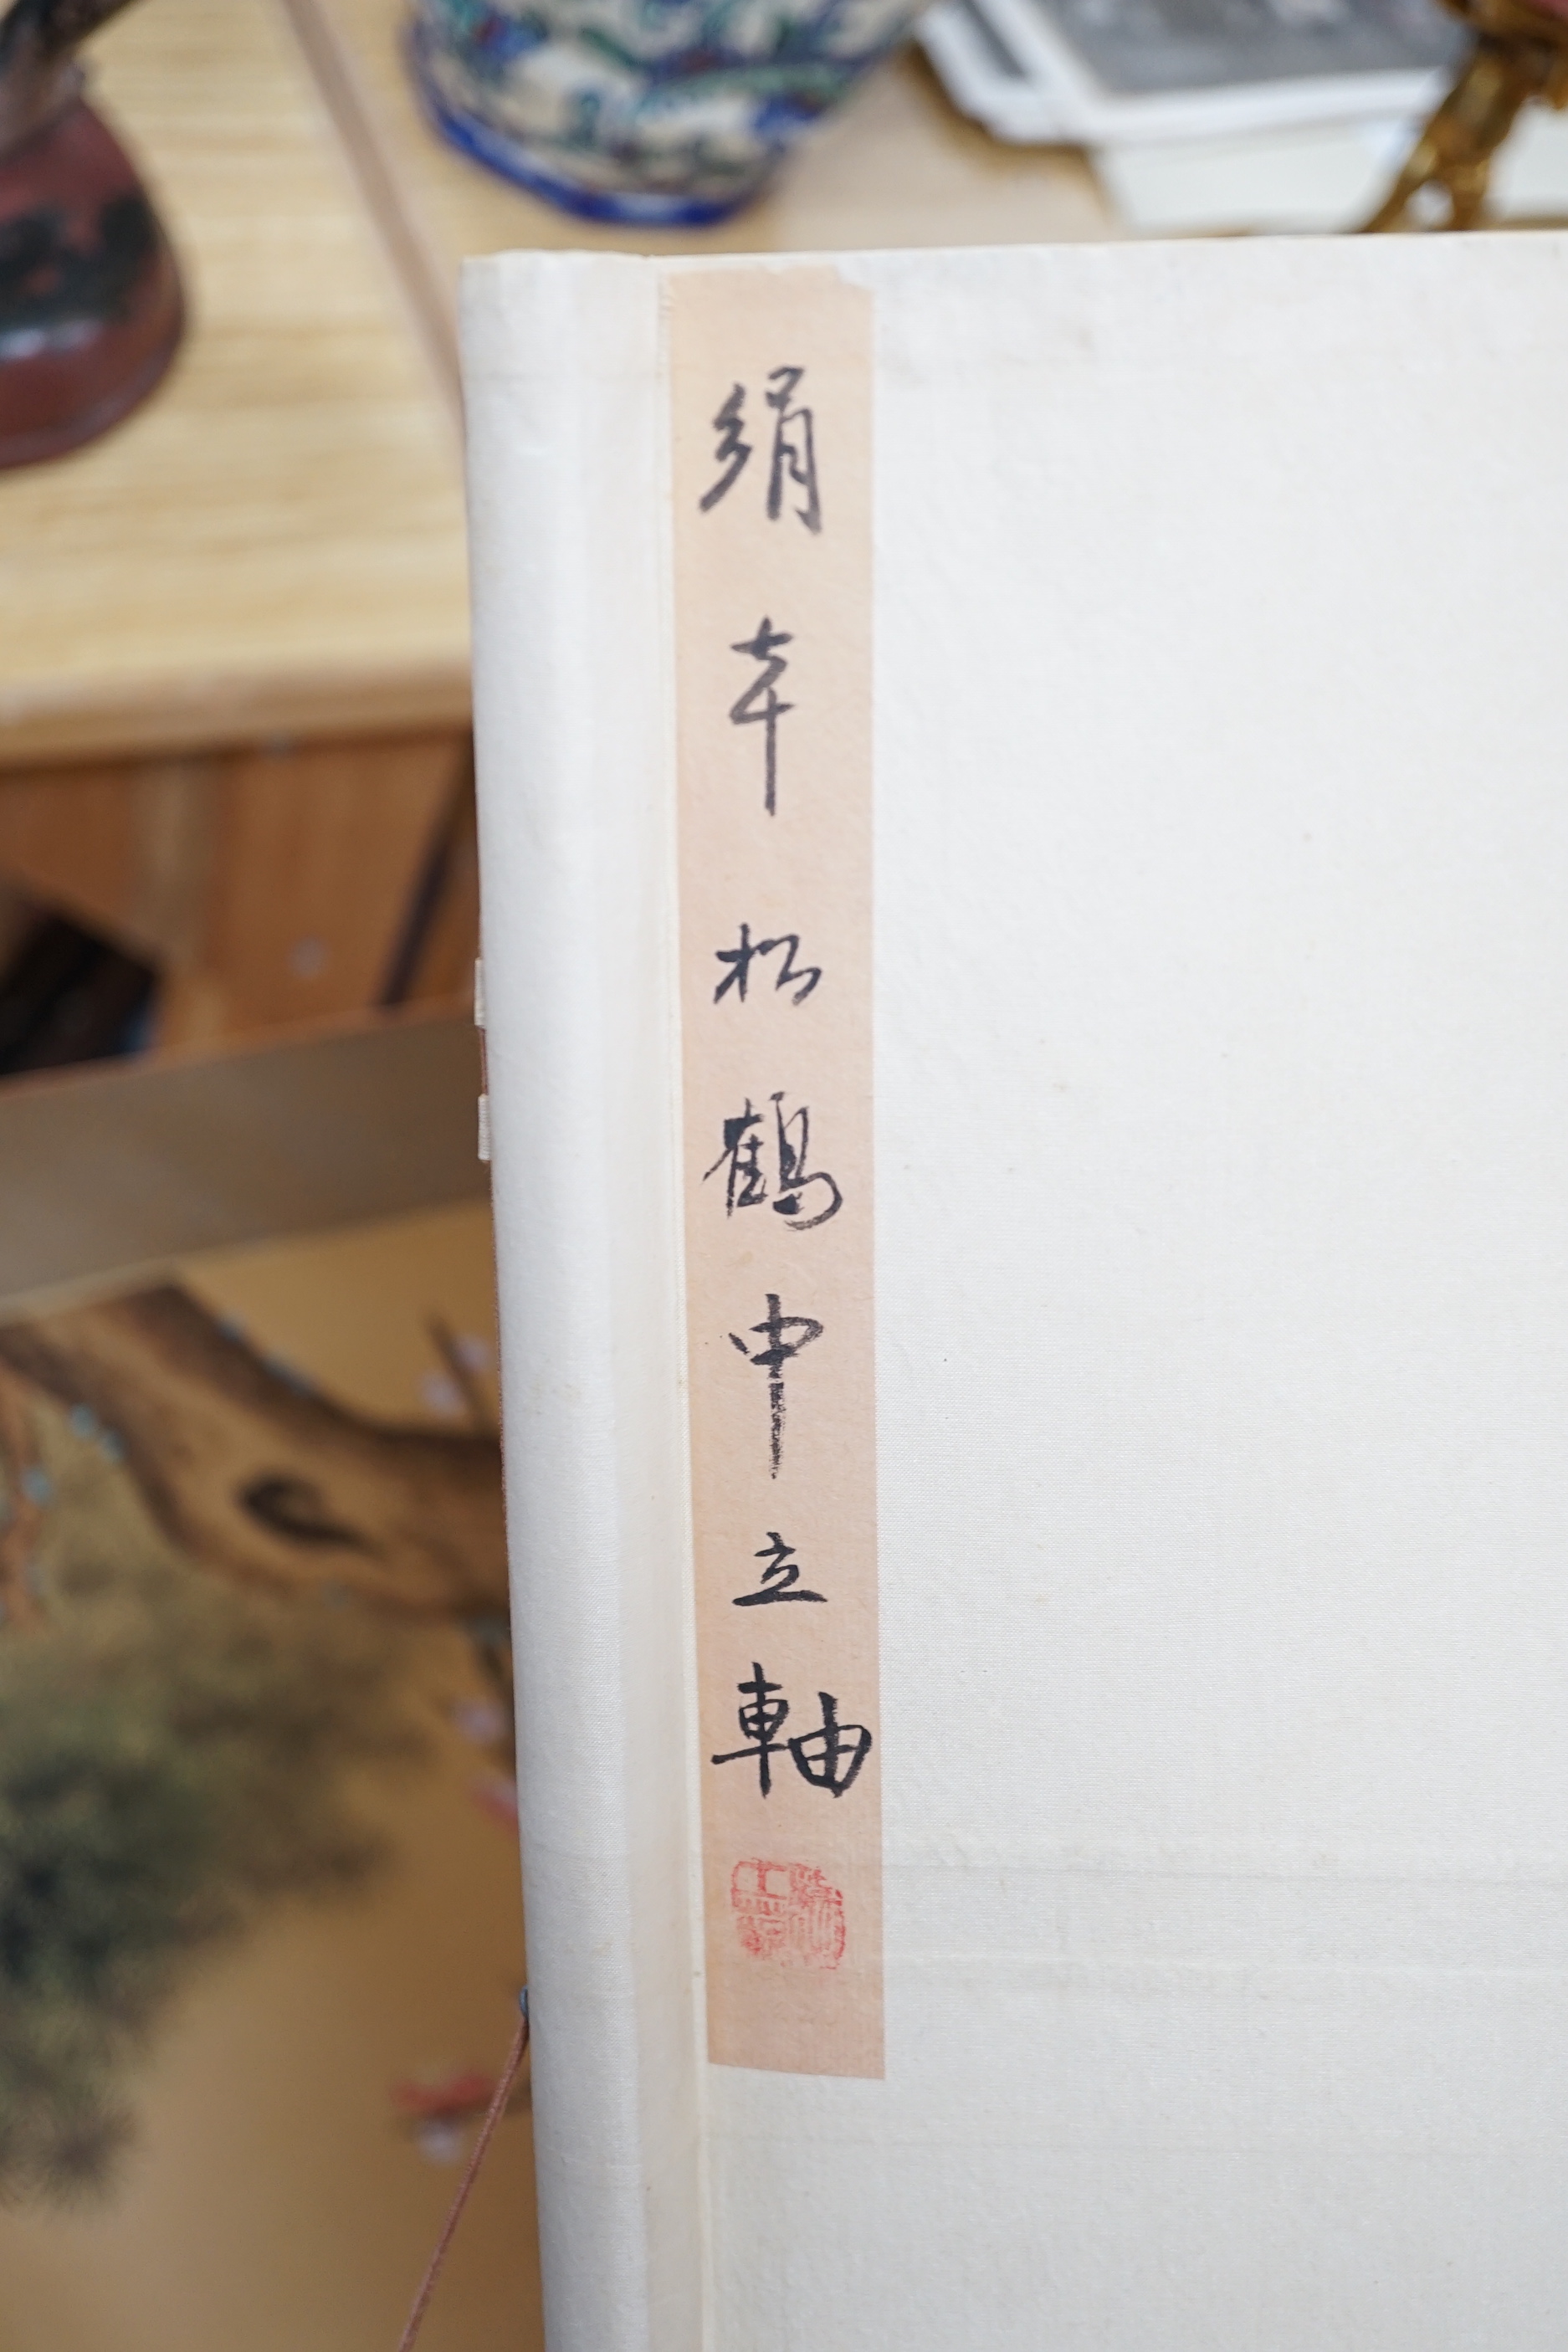 絹本松鶴中立軸